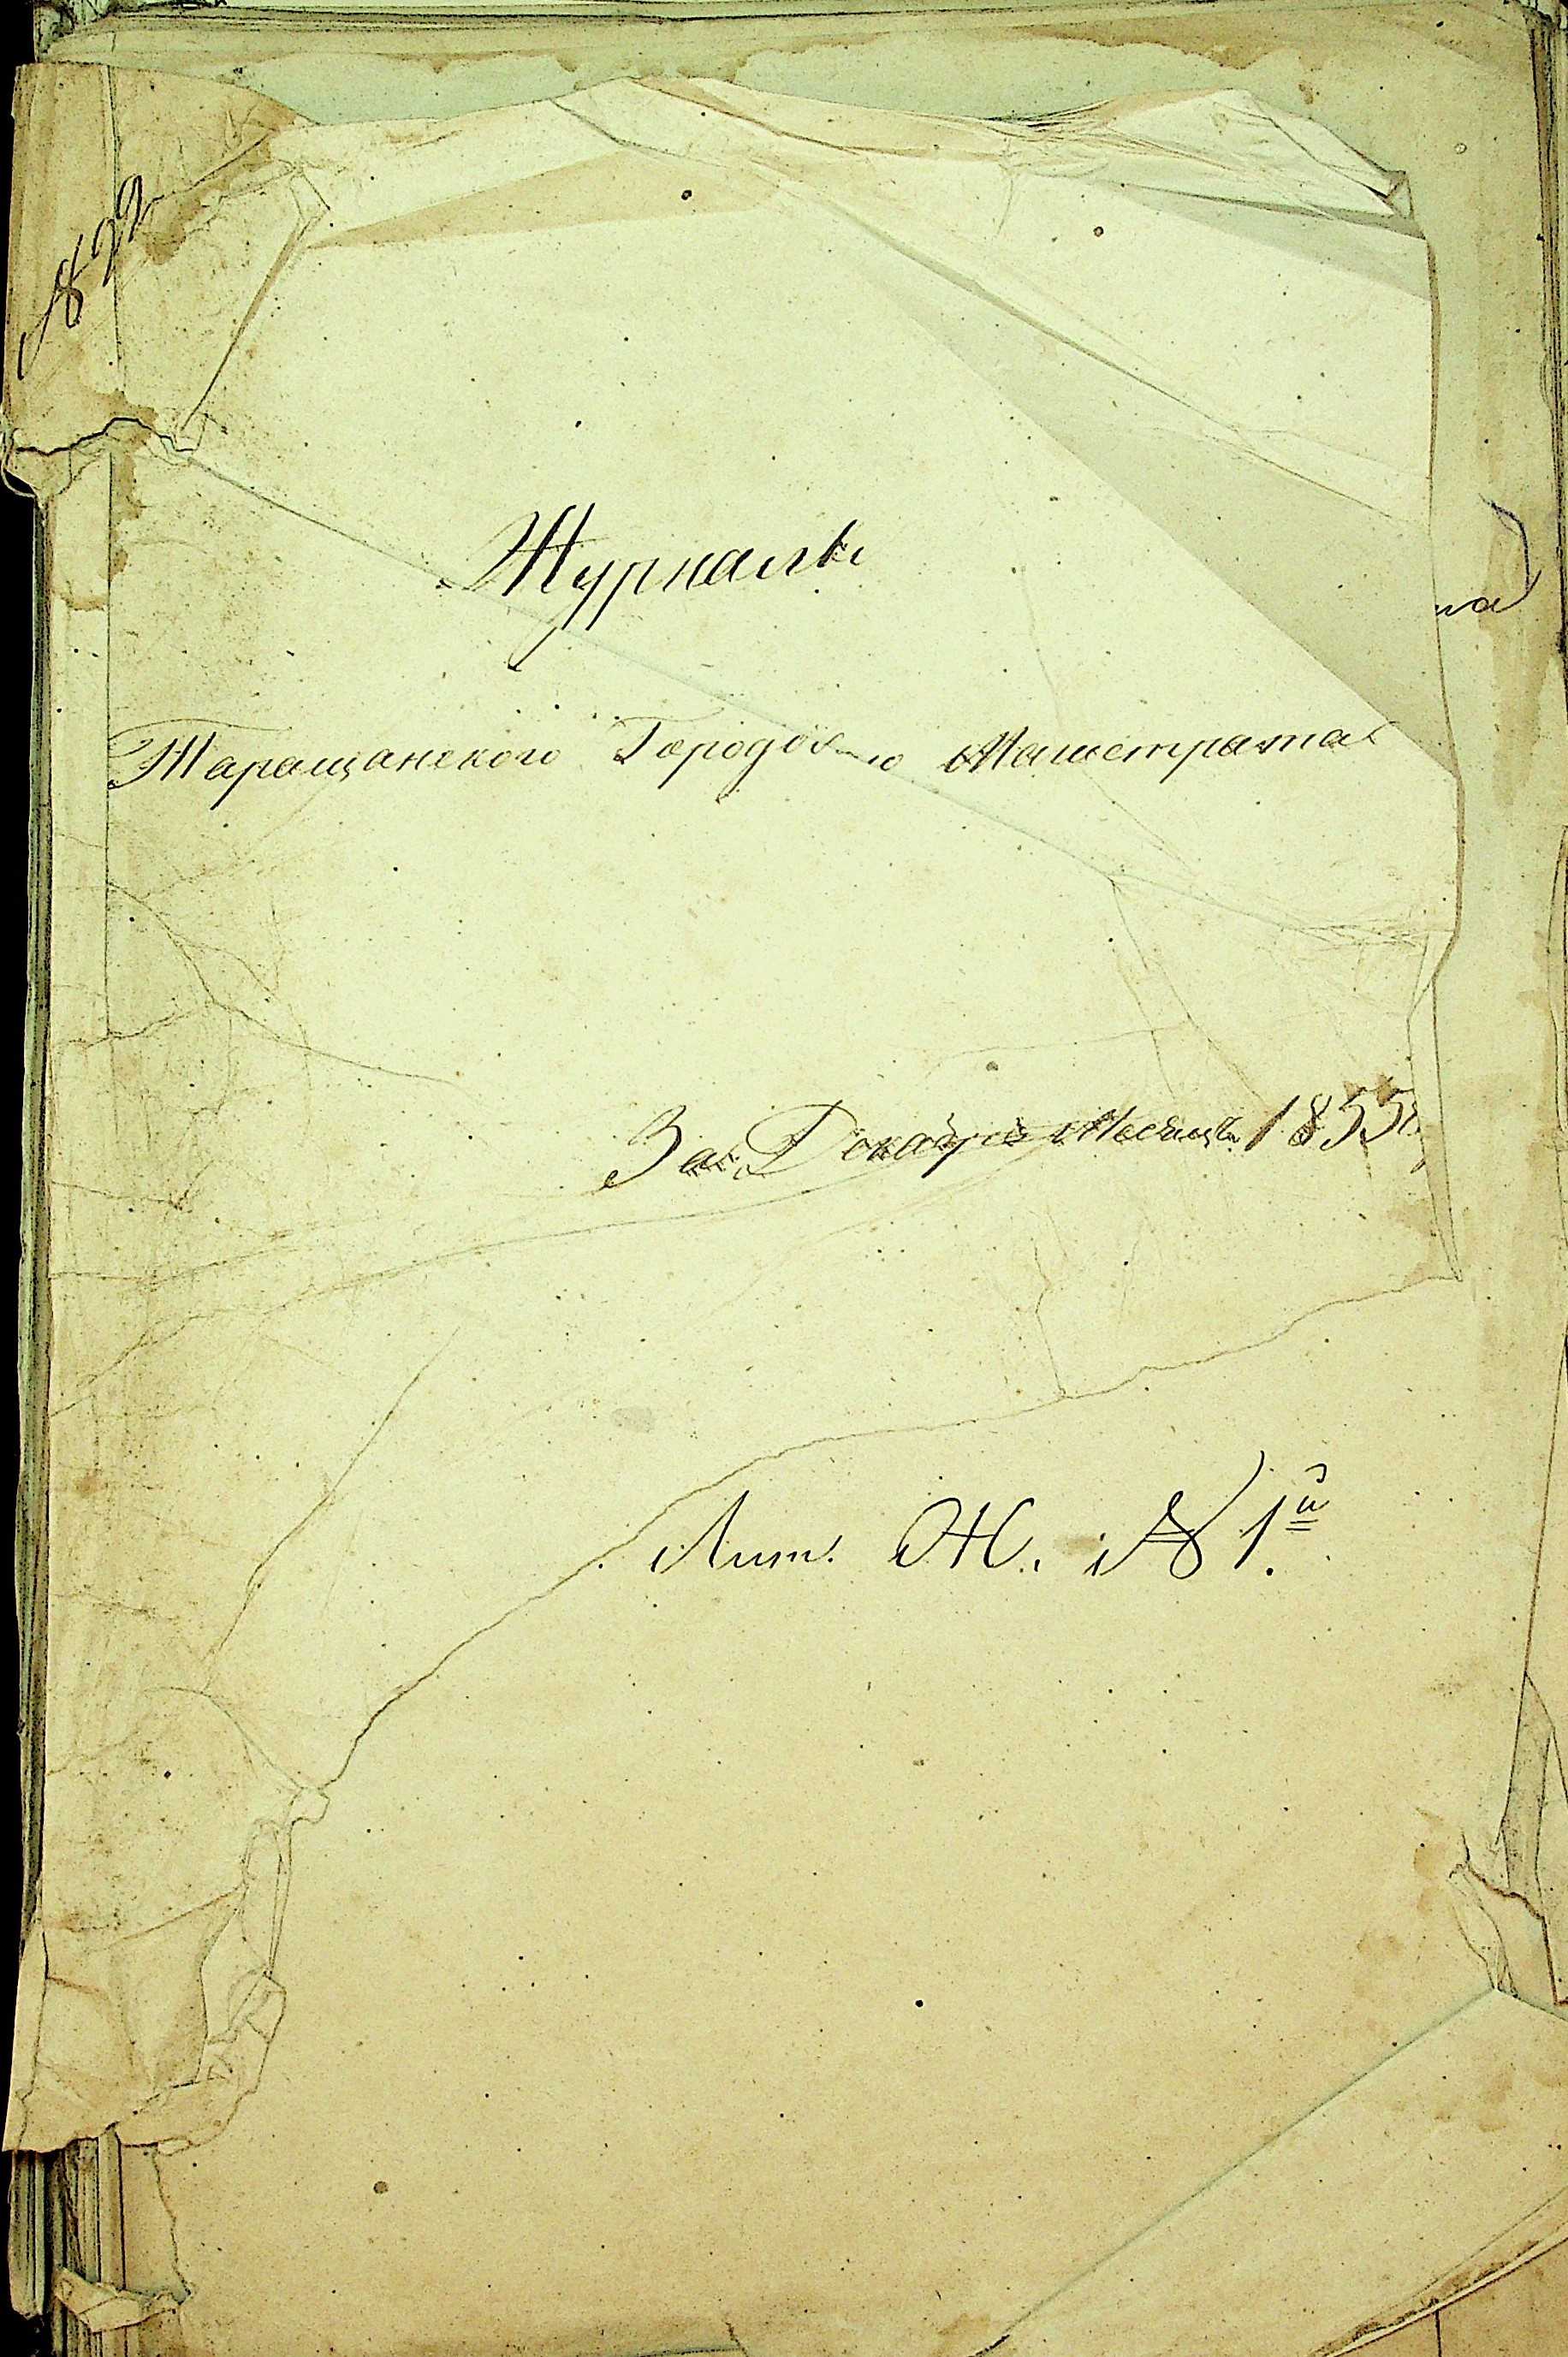 № 22
Журналы
Таращанского Городоваго Магистрата
За Декабрь Месяцъ 1855
Лит. Ж. № 1й.